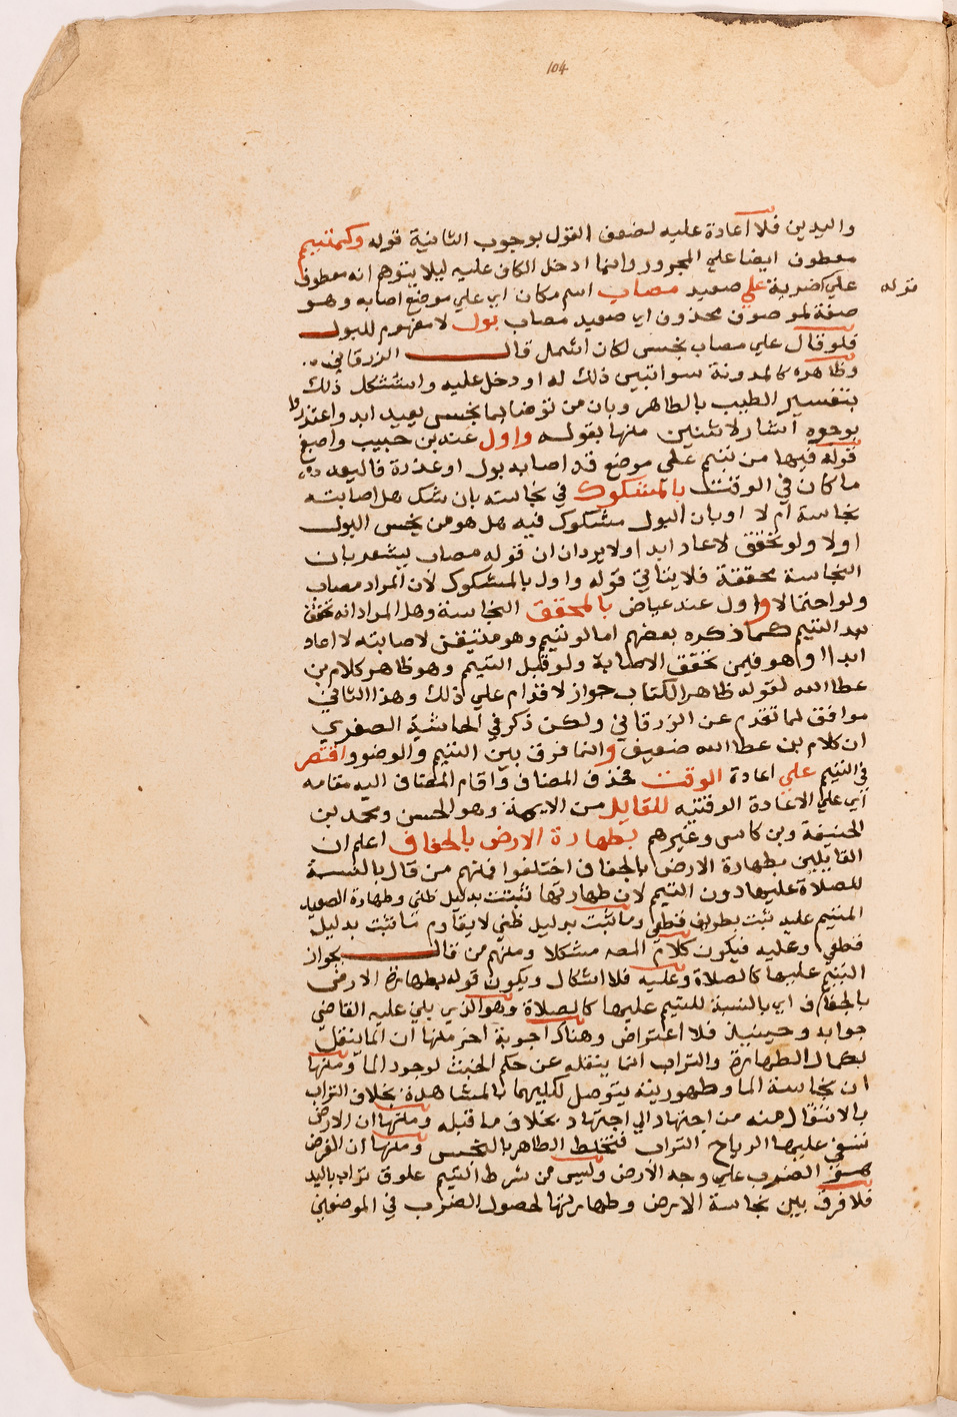 104
واليدين فلا اعادة عليه لضعف القول بوجوب الثانية قوله وكمتيمم
معطوف ايضا علي المجرور وانما ادخل الكاف عليه ليلا يتوهم انه معطوف
علي كضربة علي صعيد مصاب اسم مكان اي علي موضع اصابه وهو
قوله
صفة لموصوف محذوف اي صعيد مصاب بول لا مفهوم للبول
فلو قال علي مصاب نجس لكان اشمل قال الزرقاني
وظاهره كالمدونة سوا تبين ذلك له او دخل عليه واستشكل ذلك
بتفسير الطيب بالطاهر وبان من توضا بما نجس يعيد ابدا واعتذروا
بوجوه اشار لاثنين منها بقوله واول عند بن حبيب واصبغ
قوله فيها من تيمم علي موضع قد اصابه بول او عذرة فاليعد
ما كان في الوقت بالمشكوك في نجاسته بان شك هل اصابته
نجاسة ام لا او بان البول مشكوك فيه هل هو من نجس البول
اولا ولو تحقق لاعاد ابدا ولا يرد ان قوله مصاب يشعر بان
النجاسة محققة فلا ينافي قوله واول بالمشكوك لان المراد مصاب
ولو احتمالا واول عند عياض بالمحقق النجاسة وهل المراد انه تحقق
بعد التيمم كما ذكره بعضهم اما لو تيمم وهو متيقن لاصابته لاعاد
ابدا او هو فيمن تحقق الاصابة ولو قبل التيمم وهو ظاهر كلام بن
عطا الله لقوله ظاهر الكتاب جواز لاقدام علي ذلك وهذا الثاني
موافق لما تقدم عن الزرقاني ولكن ذكر في الحاشية الصغري
ان كلام بن عطا الله ضعيف وانما فرق بين التيمم والوضو واقتصر
في التيمم علي اعادة الوقت حذف المضاف واقام المضاف اليه مقامه
اي علي الاعادة الوقتيه للقايل من الايمة وهو الحسن ومحمد بن
الحنيفة وبن كاس وغيرهم بطهارة الارض بالجفاف اعلم ان
القايلين بطهارة الارض بالجفاف اختلفوا فمنهم من قال بالنسبة
للصلاة عليها دون التيمم لان طهارتها ثبتت بدليل ظني وطهارة الصعيد
المتيمم عليه ثبت بطريق قطعي وما ثبت بدليل ظني لا يقاوم ما ثبت بدليل
قطعي وعليه فيكون كلام المصه مشكلا ومنهم من قال بجواز
التيمم عليها كالصلاة وعليه فلا اشكال ويكون قوله بطهارة الارض
بالجفاف اي بالنسبة للتيمم عليها كالصلاة وهو الذي بني عليه القاضي
جوابه وحينيذ فلا اعتراض وهناك اجوبة اخر منها ان الما ينقل
لكمال الطهارة والتراب انما ينقله عن حكم الخبث لوجود الما ومنها
ان نجاسة الما وطهوريته يتوصل لكليهما بالمشاهدة بخلاف التراب
بالانتقال منه من اجتهاد الي اجتهاد بخلاف ما قبله ومنها ان الارض
تسفي عليها الرياح التراب فتخلط الطاهر بالنجس ومنها ان الفرض
هو الضرب علي وجه الارض وليس من شرط التيمم علوق تراب باليد
فلا فرق بين نجاسة الارض وطهارتها لحصول الضرب في الموضعين